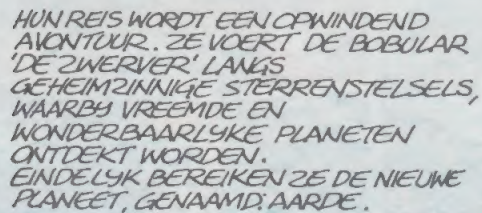 HUN REIS WORDT EEN OPWINDEND
AVONTUUR. ZE VOERT DE BOBULAR
'DE ZWERVER' LANGS
GEHEIMZINNIGE STERRENSTELSELS,
WAARBY VREEMDE EN
WONDERBAARLYKE PLANETEN
ONTDEKT WORDEN.
EINDELYK BEREIKEN ZE DE NIEUWE
PLANEET, GENAAMD: AARDE.